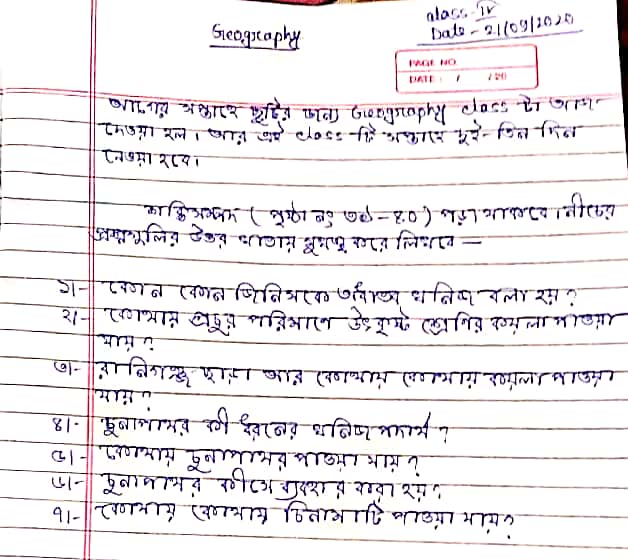 Geography
class - IV
Date - 21/09/2020
PAGE NO.
DATE: / /20
আগের সপ্তাহে ছুটির জন্য Geography class টা আজ
দেওয়া হল। আর এই class টি সপ্তাহে দুই-তিন দিন
নেওয়া হবে।
শক্তিসম্পদ (পৃষ্ঠা নং ৩৮-৪০) পড়া থাকবে। নীচের
প্রশ্নগুলির উত্তর খাতায় মুখস্থ করে লিখবে —
১।- কোন কোন জিনিসকে অধাতব খনিজ বলা হয়?
২।- কোথায় প্রচুর পরিমাণে উৎকৃষ্ট শ্রেণির কয়লা পাওয়া
যায়?
৩।- রানিগঞ্জ ছাড়া আর কোথায় কোথায় কয়লা পাওয়া
যায়?
৪।- চুনাপাথর কী ধরনের খনিজ পদার্থ?
৫।- কোথায় চুনাপাথর পাওয়া যায়?
৬।- চুনাপাথর কীসে ব্যবহার করা হয়?
৭।- কোথায় কোথায় চিনামাটি পাওয়া যায়?